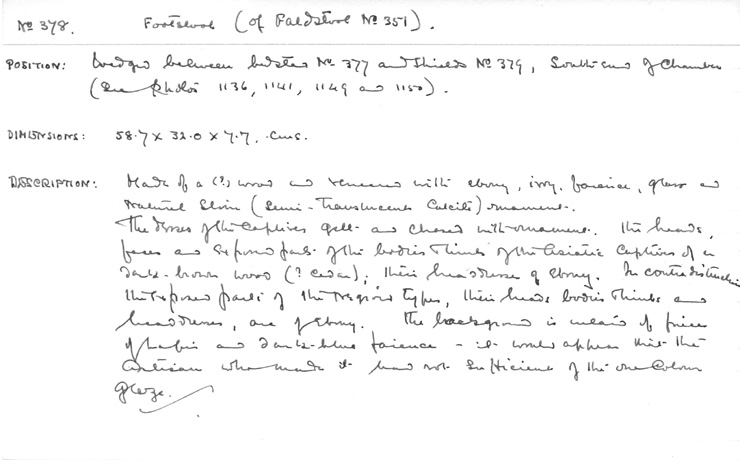 No 378. Footstool (of Faldstool No 351).
POSITION: Wedged between bedstead No 377 and shields No 379, South end of Chamber
(See photos 1136, 1141, 1149 and 1150).
DIMENSIONS: 58.7 x 32.0 x 7.7. cms.
DESCRIPTION: Made of a (?) wood and veneered with ebony, ivory, faience, glass and
Natural Stone (Semi-Translucent Calcite) ornament.
The dresses of the Captives gilt and chased with ornament. The heads,
faces and exposed parts of the bodies & limbs of the Asiatic Captives of a
dark-brown wood (? cedar); their headdresses of ebony. In contradistinction
the exposed parts of the Negroid types, their heads bodies & limbs and
headdresses, are of Ebony. The background is inlaid of pieces
of lapis and dark-blue faience - it would appear that the
artisan who made it had not sufficient of the one Colour
glaze.